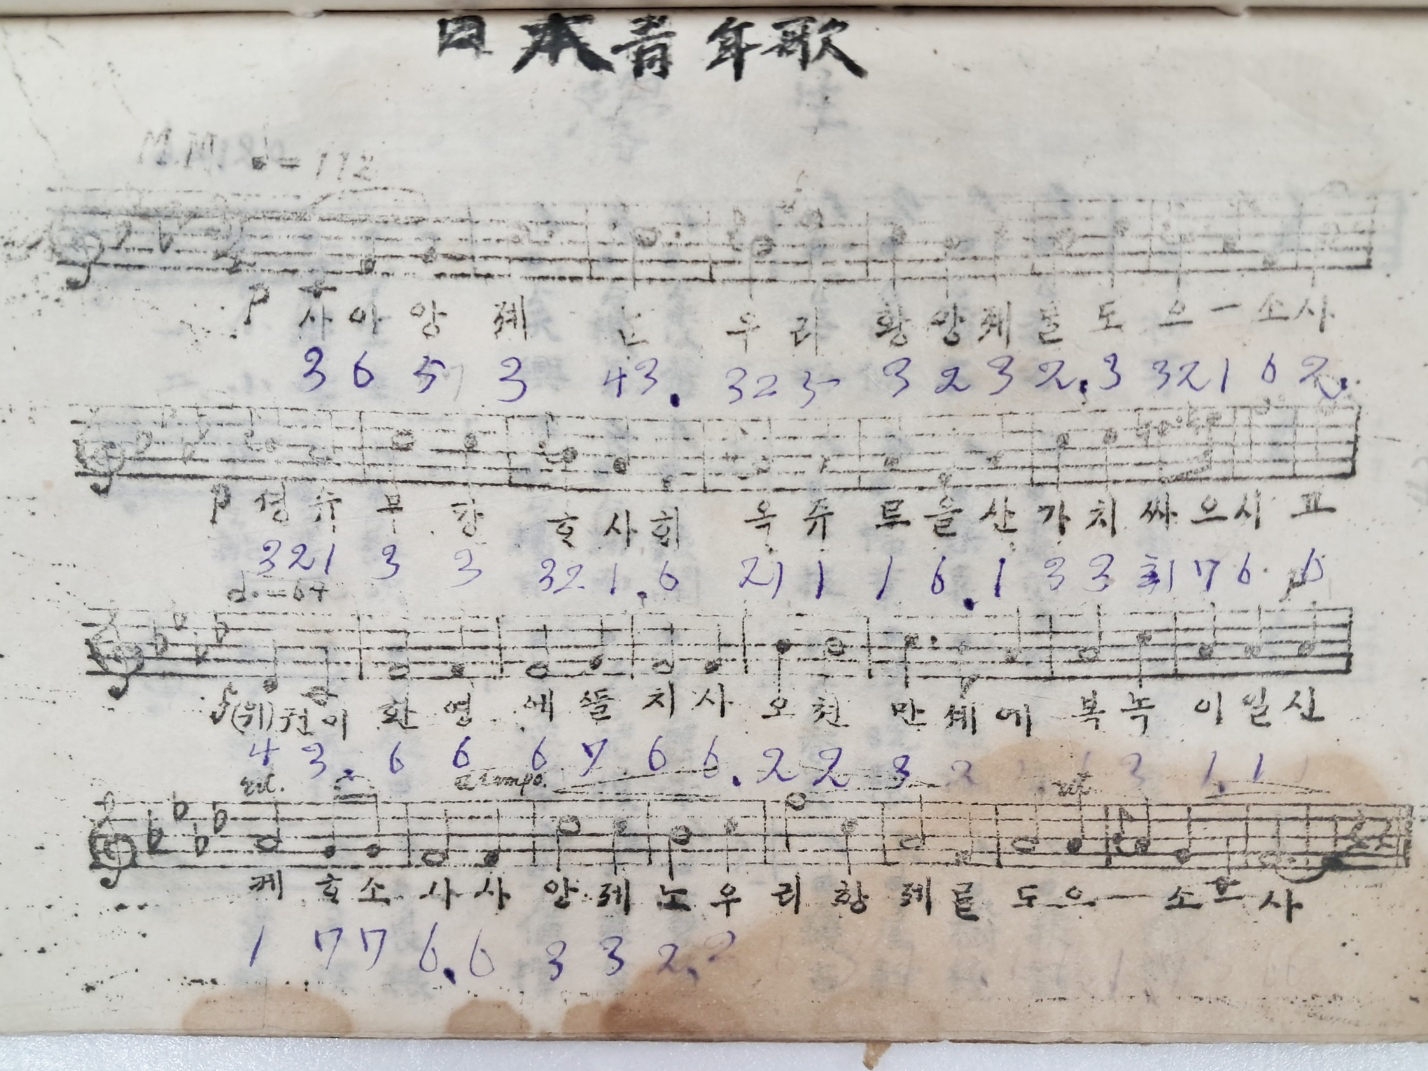 日本青年歌
M.M. ♩=112
p 사아앙졔 는 우리 황앙졔를도으ー소사
3 6 5 3 43. 32 3 2 3 2.3 321 6 2.
p 셩슈무강 호사 옥쥬로을산가치싸으시고
321 3 3 32 1.6 21 1 1 6.1 3 3 1 7 6. 6
=64
f (위)권이 환영에 치사 오천만세에 복녹이일신
4 3. 6 6 6 7 6 6. 2 2 3 2 3 1.1
rit. a tempo. rit
케 호소사사 앙졔는우리황졔를도으ー소으사
1 7 7 6.6 3 3 2.2